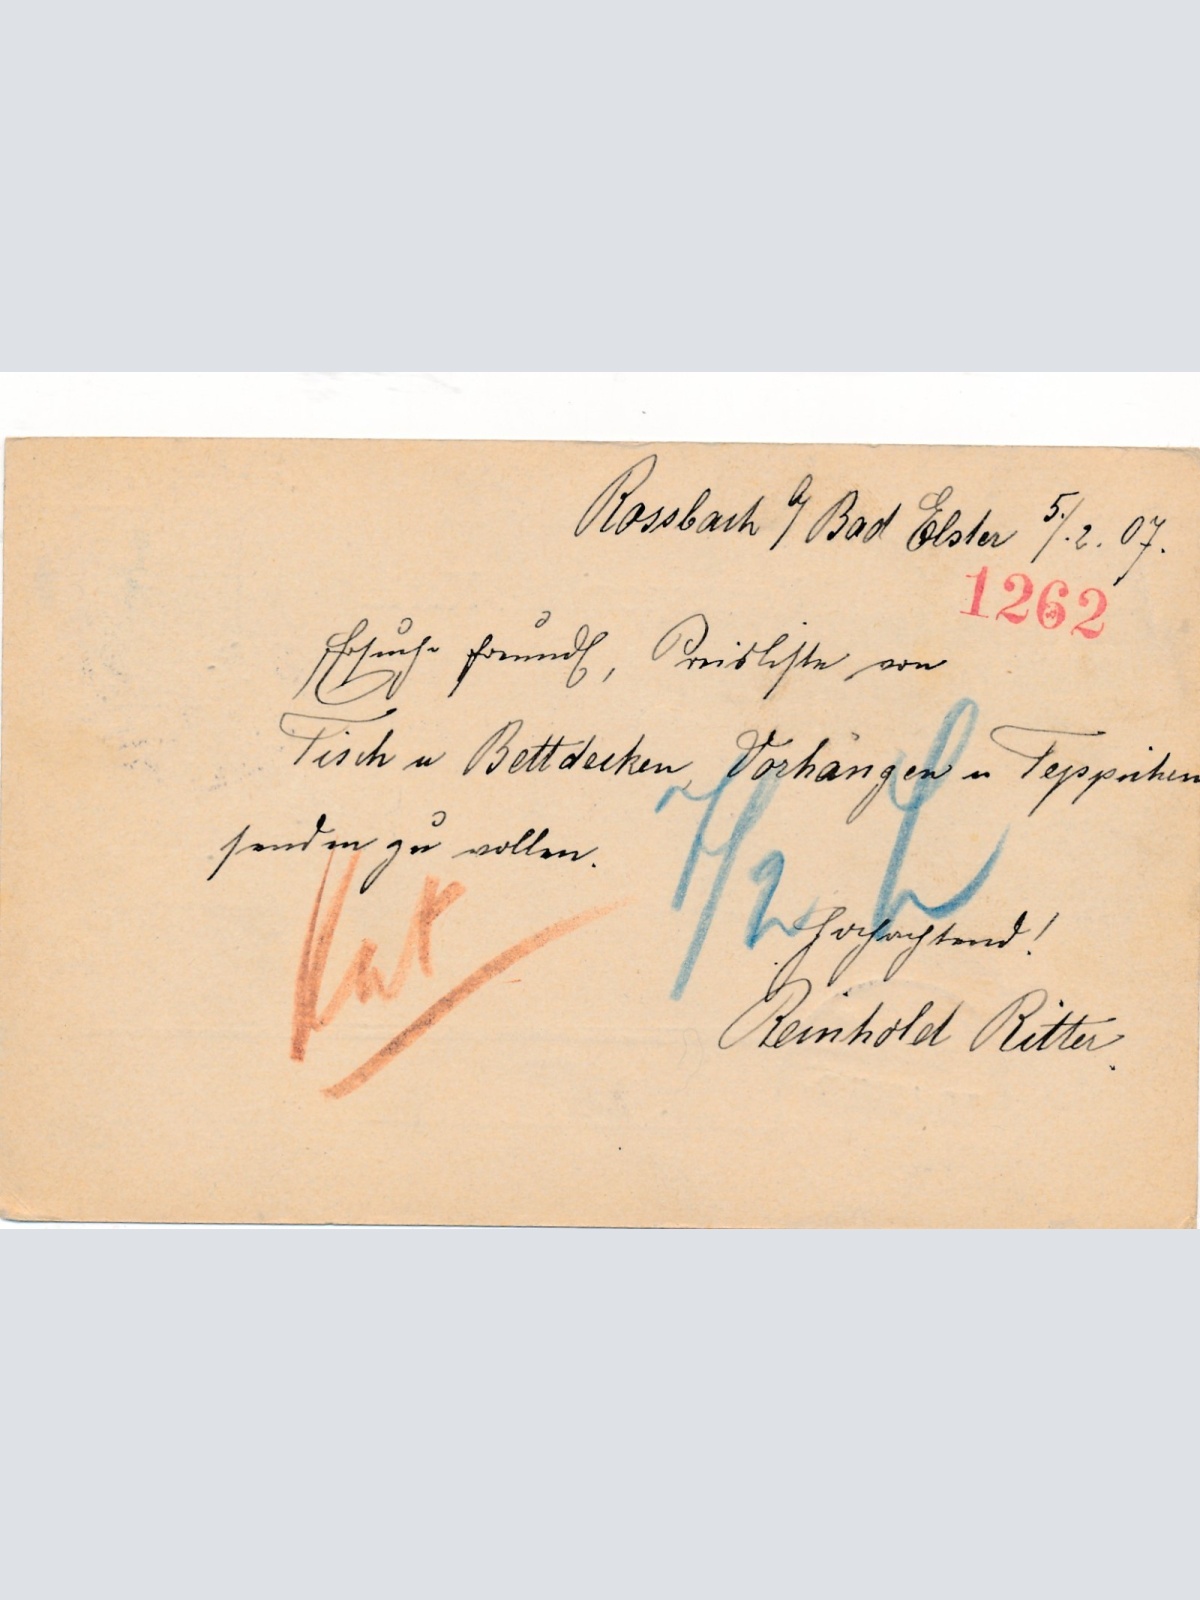 Rossbach a/ Bad Elster 5./2. 07.
1262
Ersuche freundl, Preisliste von
Tisch u Bettdecken, Vorhängen u Teppichen
senden zu wollen.
Kat
7/2
Hochachtend!
Reinhold Ritter.